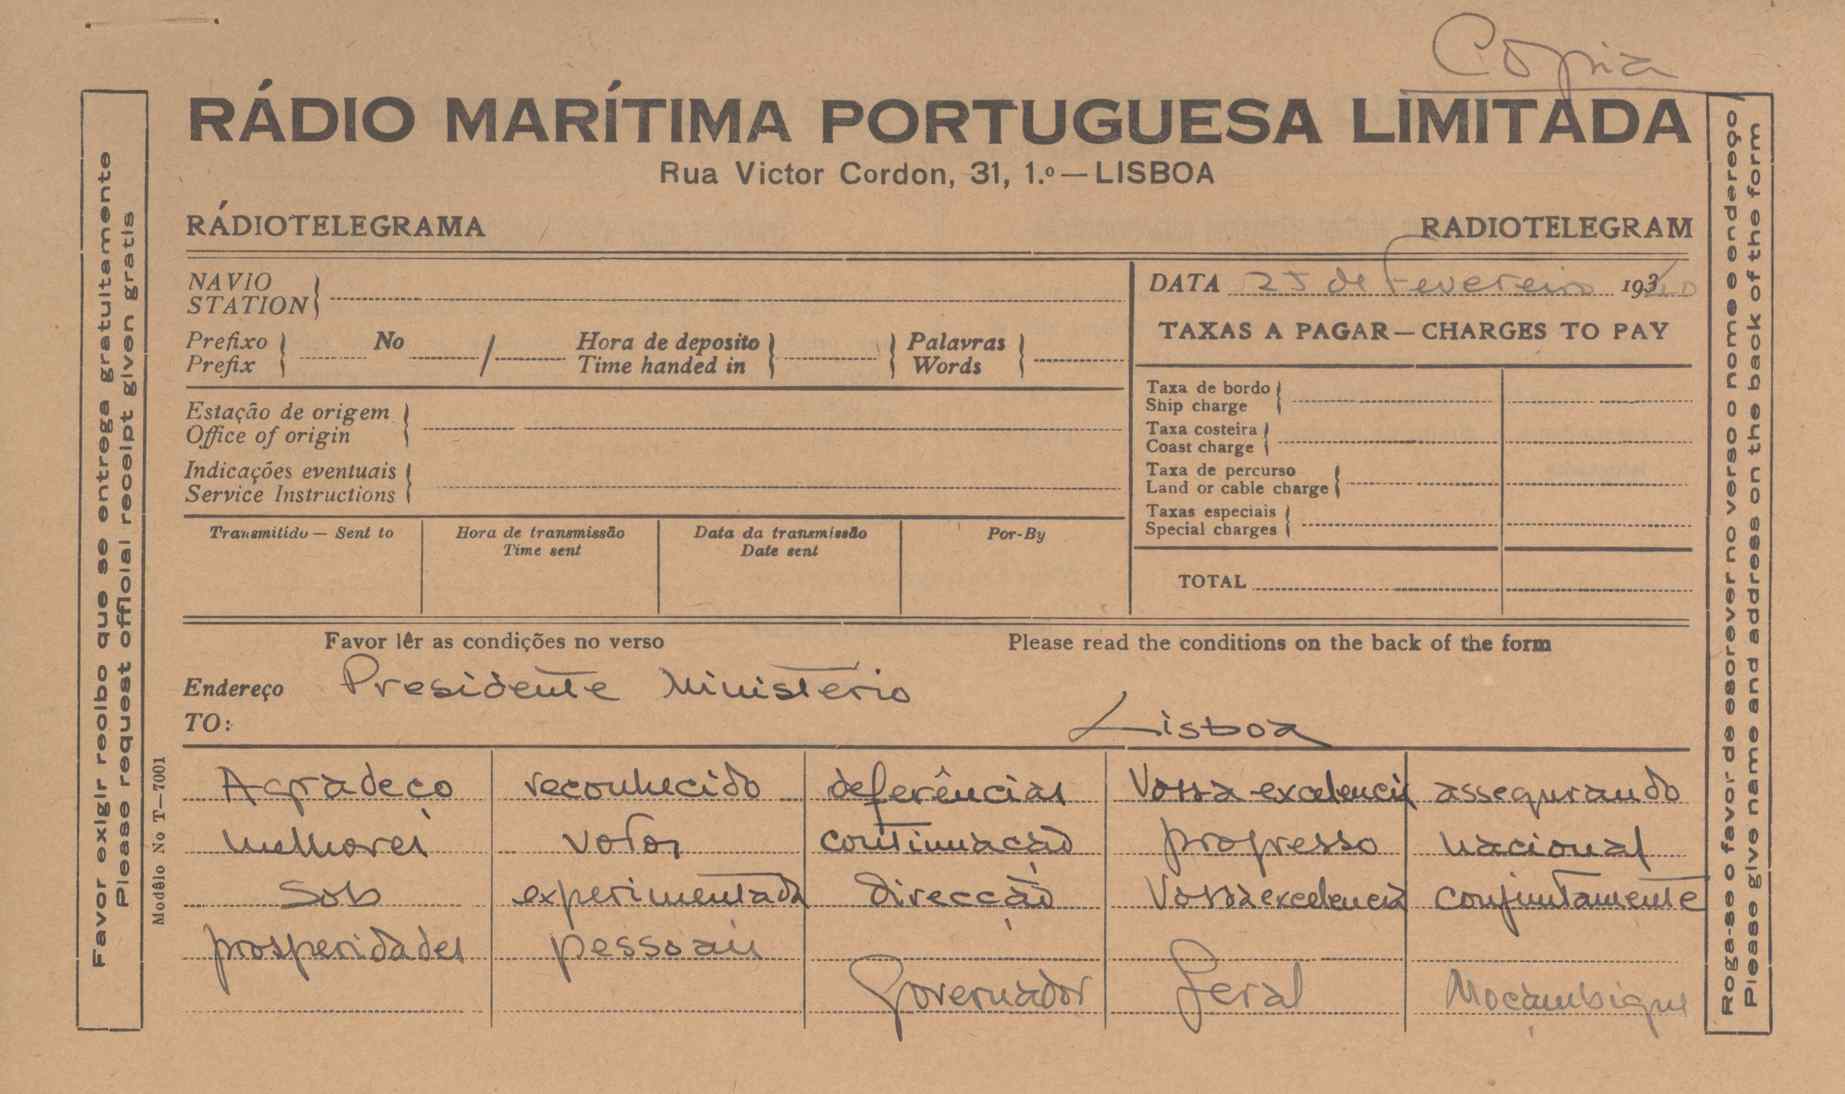 Copia
RÁDIO MARÍTIMA PORTUGUESA LIMITADA
Rua Victor Cordon, 31, 1.º — LISBOA
RÁDIOTELEGRAMA RADIOTELEGRAM
NAVIO
STATION
DATA 25 de Fevereiro 1940
Prefixo
Prefix
No /
Hora de deposito
Time handed in
Palavras
Words
TAXAS A PAGAR — CHARGES TO PAY
Estação de origem
Office of origin
Indicações eventuais
Service Instructions
Taxa de bordo
Ship charge
Taxa costeira
Coast charge
Taxa de percurso
Land or cable charge
Taxas especiais
Special charges
TOTAL
Transmitido — Sent to
Hora de transmissão
Time sent
Data da transmissão
Date sent
Por-By
Favor lêr as condições no verso Please read the conditions on the back of the form
Endereço Presidente Ministerio
TO: Lisboa
Agradeço reconhecido deferências Vossa excelencia assegurando
melhores votos continuação progresso nacional
sob experimentada direcção Vossa excelencia conjuntamente
prosperidades pessoais
Governador Geral Moçambique
Favor exigir recibo que se entrega gratuitamente
Please request official receipt given gratis
Modêlo No T—7001
Roga-se o favor de escrever no verso o nome e endereço
Please give name and address on the back of the form